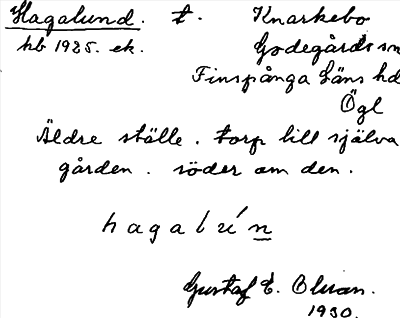 Hagalund. t. Knarkebo
hb 1925. ek. Godegårds sn
Finspånga läns hd
Ögl
Äldre ställe. torp till själva
gården. söder om den.
hagalún
Gustaf E. Olsson.
1930.